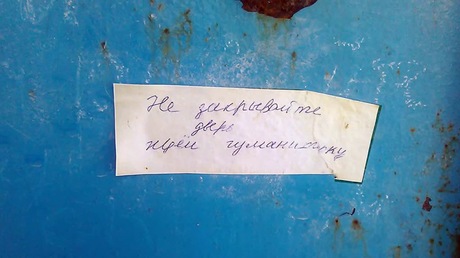 Не закрывайте
дверь
ждём гуманитарку